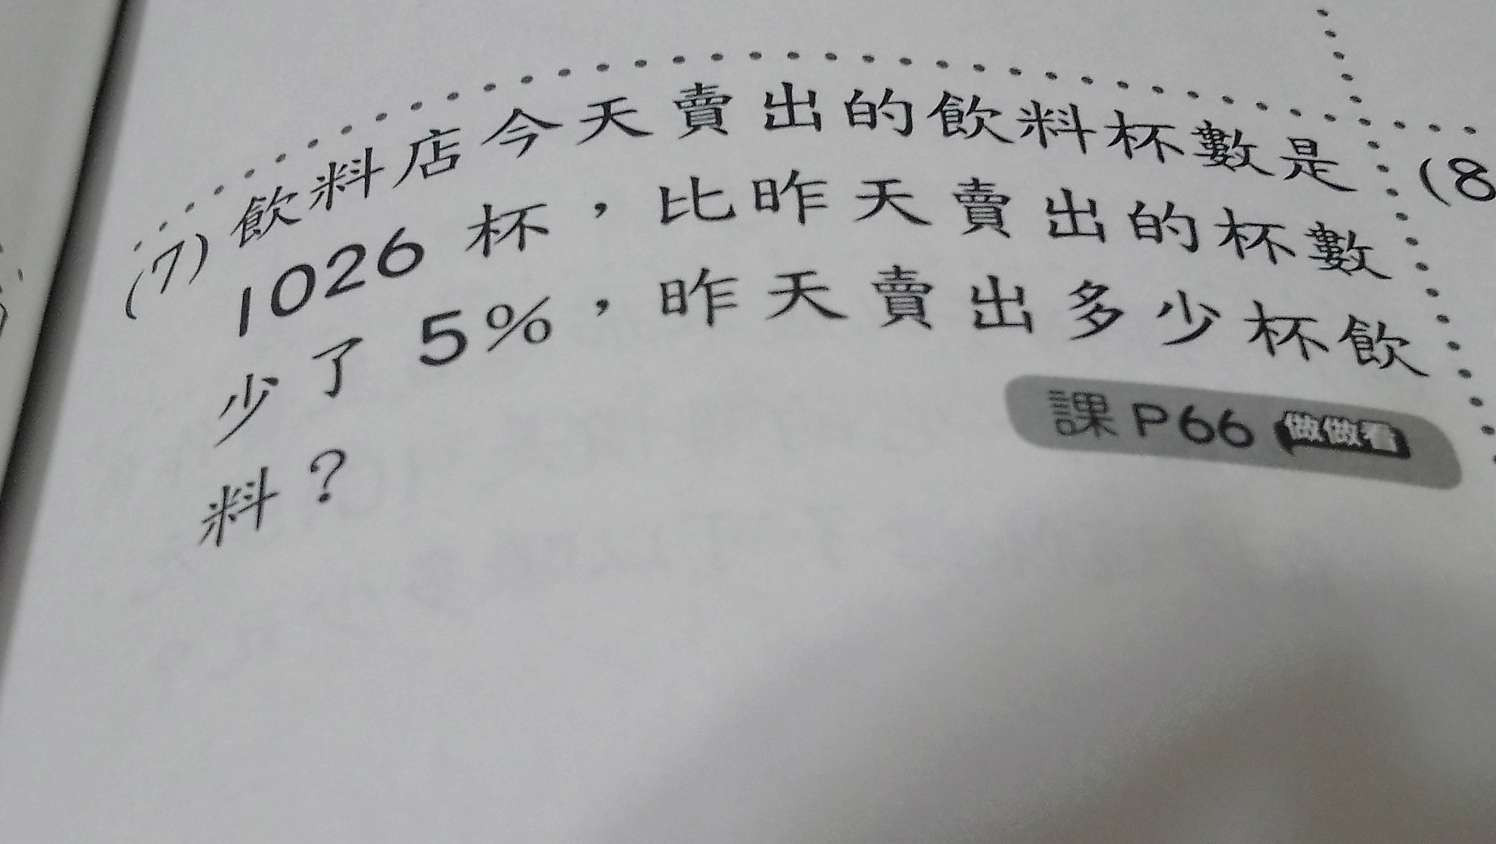 (7) 飲料店今天賣出的飲料杯數是
1026 杯，比昨天賣出的杯數
少了 5%，昨天賣出多少杯飲
料？
課 P66 做做看
(8